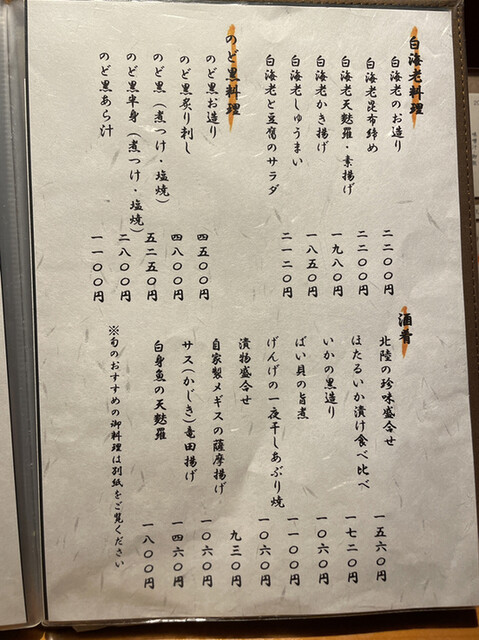 白海老料理
白海老のお造り 二二〇〇円
白海老昆布締め 二二〇〇円
白海老天麩羅・素揚げ 一九八〇円
白海老かき揚げ 一八五〇円
白海老しゅうまい 二一二〇円
白海老と豆腐のサラダ
のど黒料理
のど黒お造り 四五〇〇円
のど黒炙り刺し 四八〇〇円
のど黒(煮つけ・塩焼) 五二五〇円
のど黒半身(煮つけ・塩焼) 二八〇〇円
のど黒あら汁 一一〇〇円
酒肴
北陸の珍味盛合せ 一五六〇円
ほたるいか漬け食べ比べ 一七二〇円
いかの黒造り 一〇六〇円
ばい貝の旨煮 一一〇〇円
げんげの一夜干しあぶり焼 一〇六〇円
漬物盛合せ 九三〇円
自家製メギスの薩摩揚げ 一〇六〇円
サス(かじき)竜田揚げ 一四六〇円
白身魚の天麩羅 一八〇〇円
※旬のおすすめの御料理は別紙をご覧ください